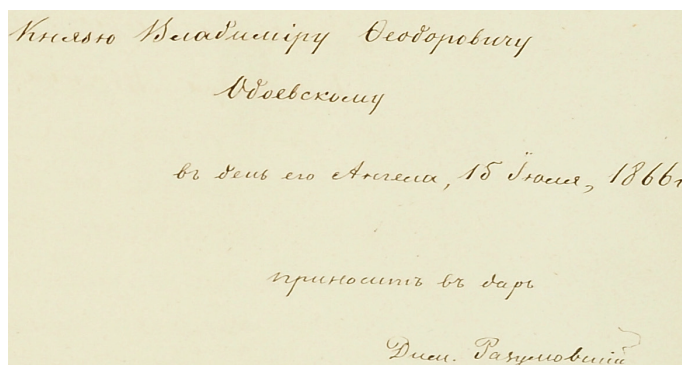 Князю Владиміру Ѳеодоровичу
Одоевскому
въ день его Ангела, 15 Іюля, 1866 г
приноситъ въ даръ
Дим. Разумовскій